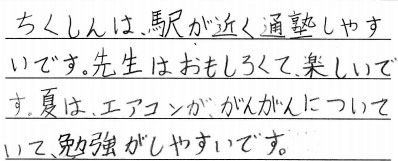 ちくしんは、駅が近く通塾しやす
いです。先生はおもしろくて、楽しいで
す。夏は、エアコンが、がんがんについて
いて、勉強がしやすいです。